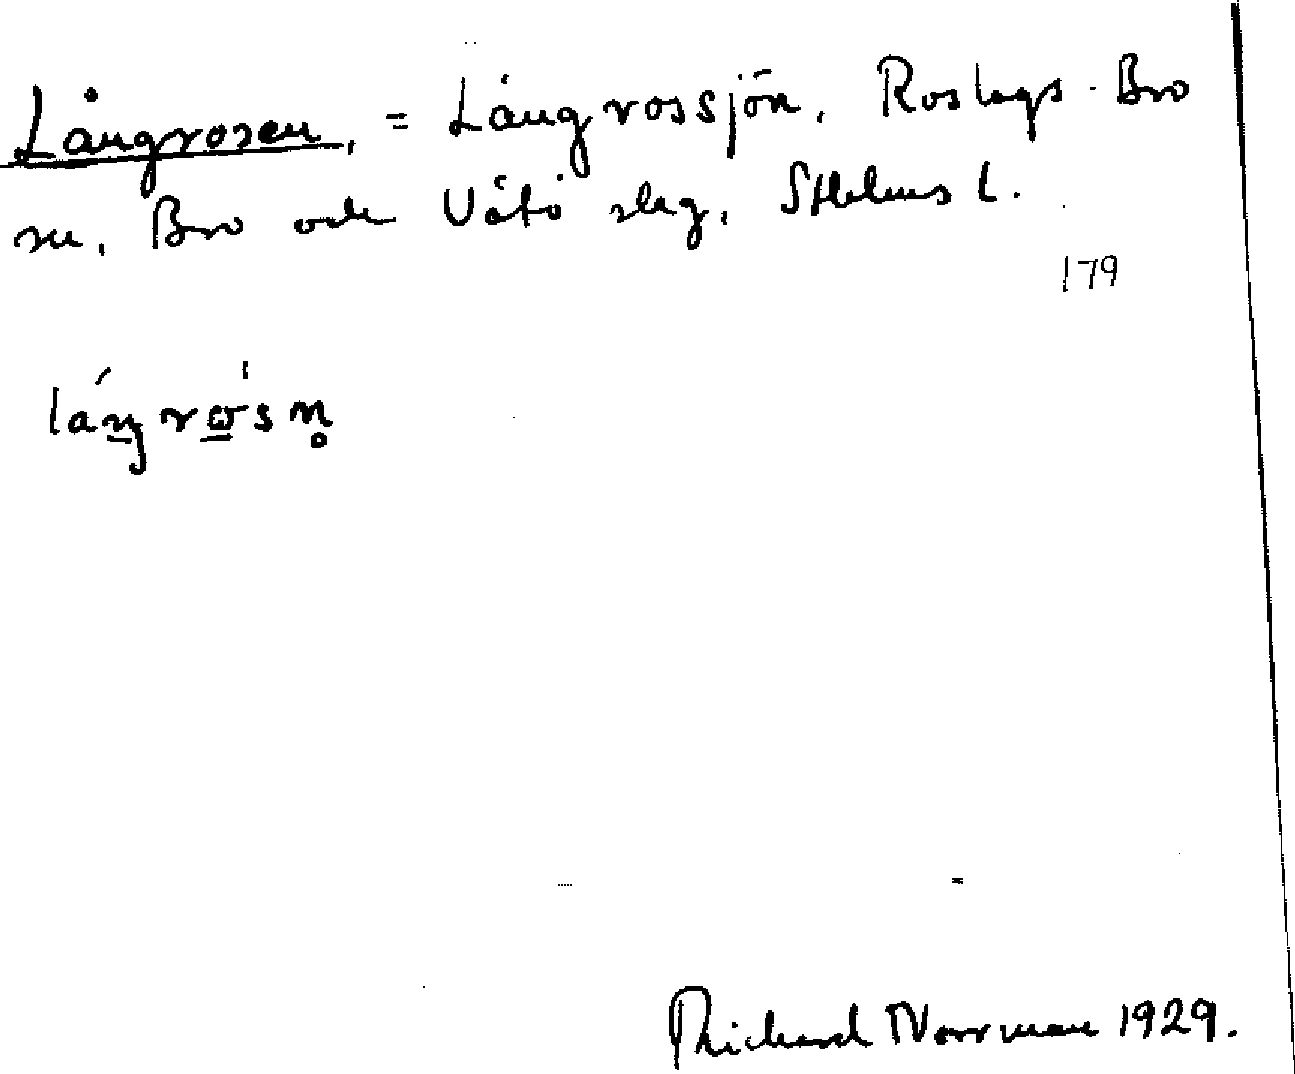 Långrosen, = Långrossjön, Roslags-Bro
sn, Bro och Vätö slg, Sthlms l.
179
láŋrώ̲sn̥
Richard Norrman 1929.